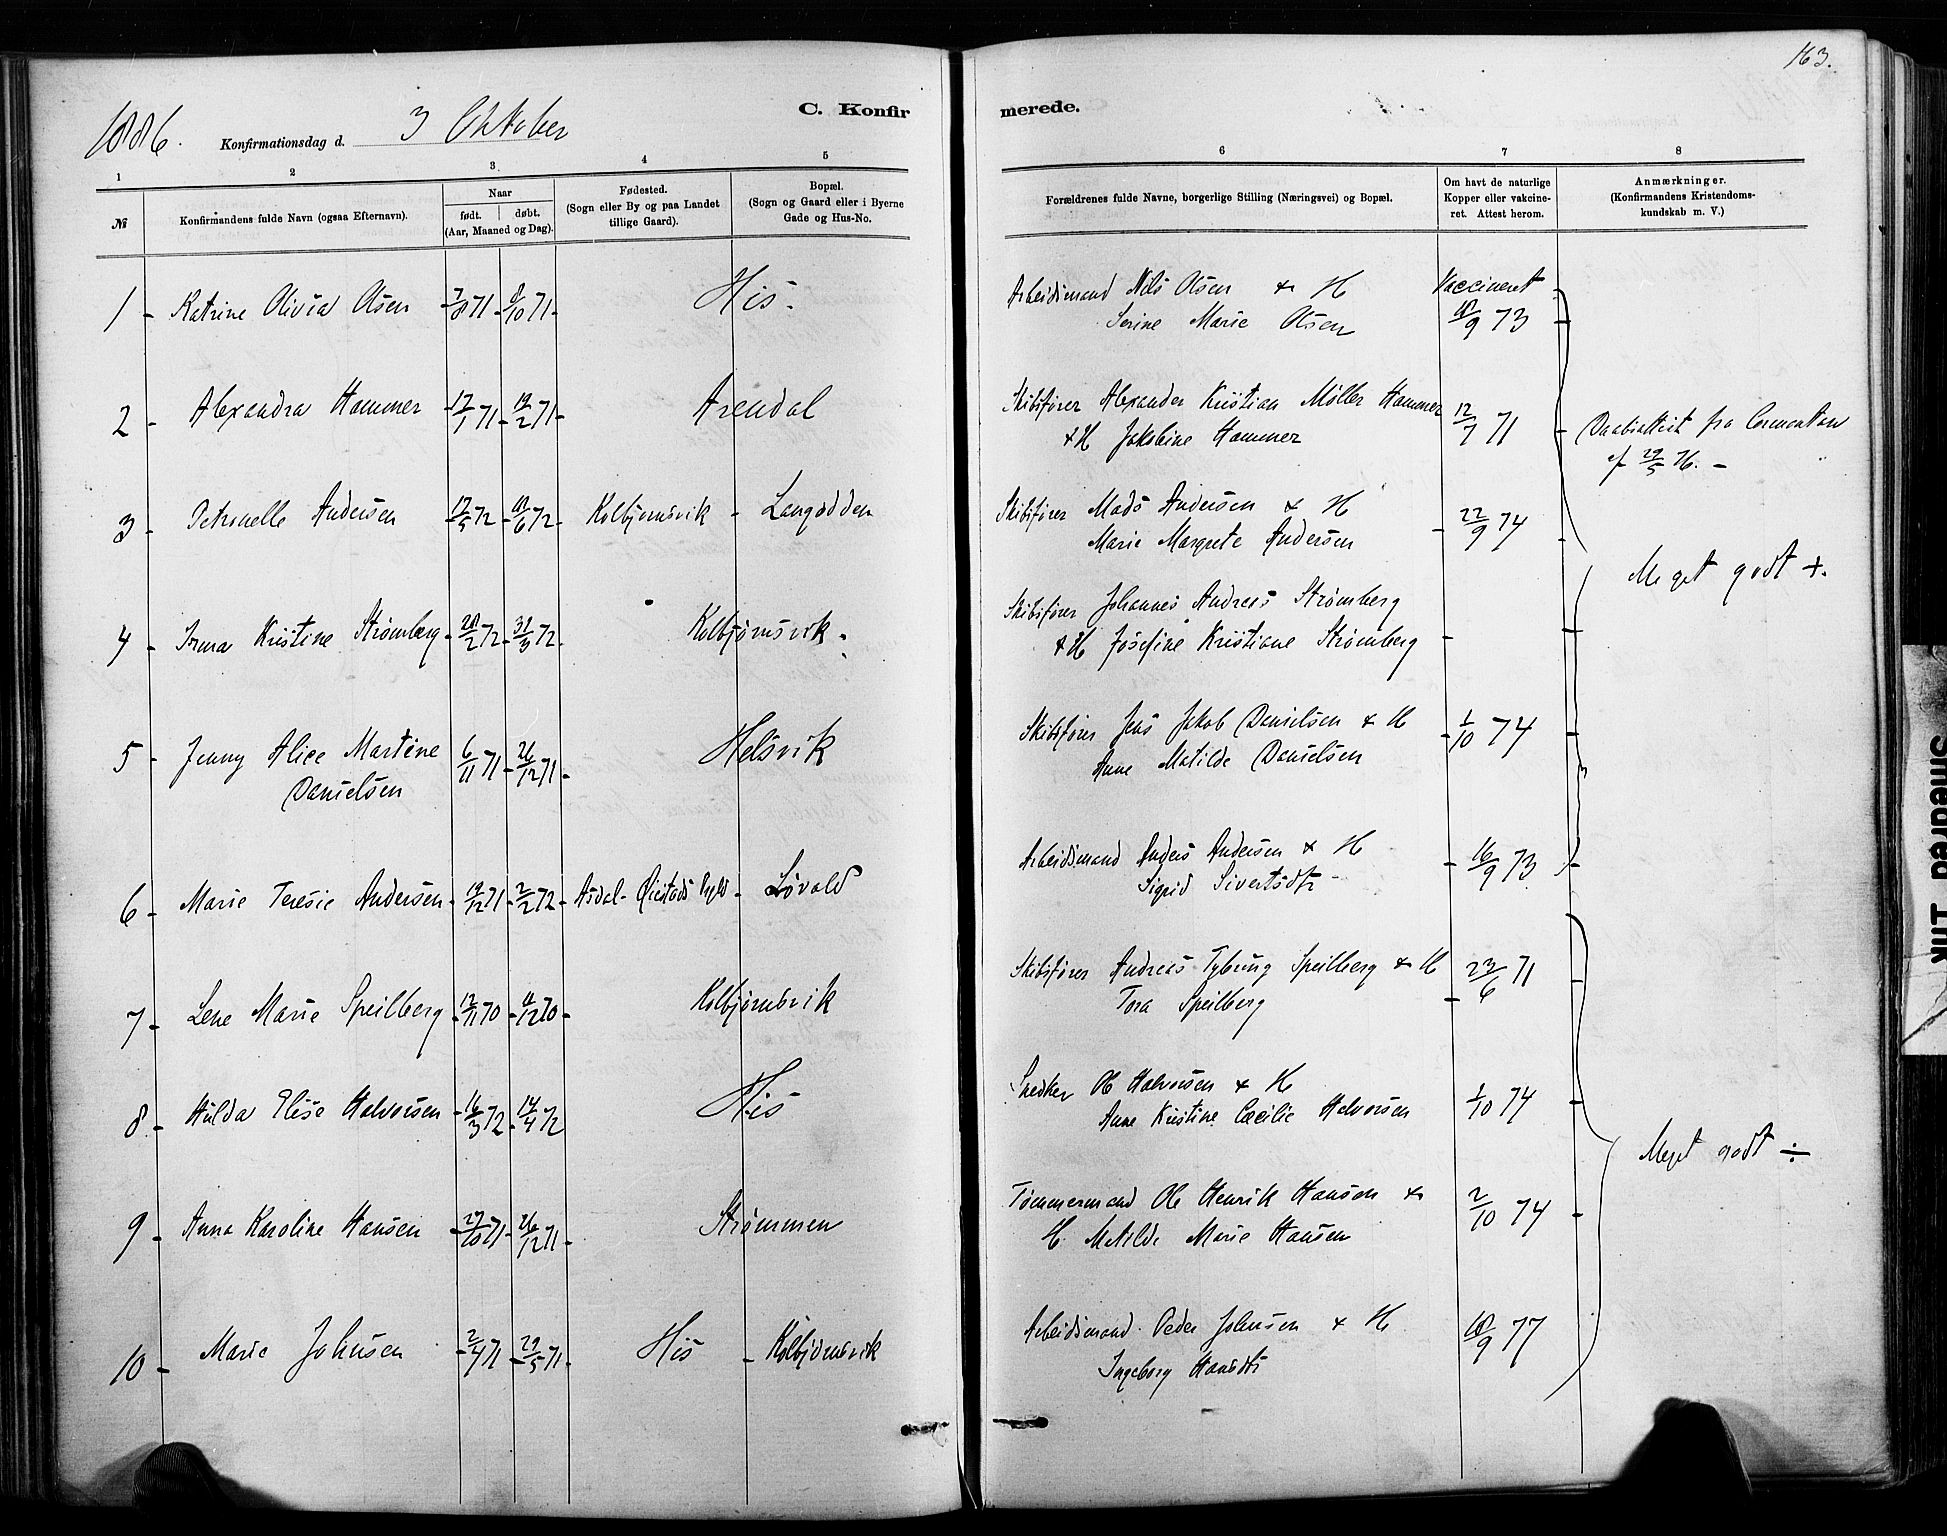 163.
1886. Konfirmationsdag d. 3 Oktober
C. Konfir merede.
1 2 3. 4 5 6 7 8
№
Konfirmandens fulde Navn (ogsaa Efternavn).
Naar
født. døbt.
(Aar, Maaned og Dag).
Fødested.
(Sogn eller By og paa Landet
tillige Gaard).
Bopæl.
(Sogn og Gaard eller i Byerne
Gade og Hus-No.
Forældrenes fulde Navne, borgerlige Stilling (Næringsvei) og Bopæl.
Om havt de naturlige
Kopper eller vakcine-
ret. Attest herom.
Anmærkninger.
(Konfirmandens Kristendoms-
kundskab m. V.)
1 - Katrine Olivia Olsen 7/8 71 - 8/10 71 - His. Arbeidsmand Nils Olsen & H Vaccineret
Serine Marie Olsen 18/9 73
2 - Alexandra Hammer 17/1 71 - 19/2 71 - Arendal Skibsfører Alexander Kristian Møller Hammer 12/7 71 Daabsattest fra
& H Jakobine Hammer
3 - Petronelle Andersen 17/5 72 - 18/6 72 - Kolbjørnsvik - Langodden Skibsfører Mads Andersen & H 22/9 74
Marie Margrete Andersen
Meget godt +.
4 - Irma Kristine Strømberg - 28/2 72 - 31/3 72 - Kolbjørnsvik - Skibsfører Johannes Andreas Strømberg
& H Josefine Kristiane Strømberg -
5 - Jenny Alice Martine 6/11 71 - 26/12 71 - Helsvik Skibsfører Jens Jakob Danielsen & H 1/10 74
Danielsen Anne Matilde Danielsen
6 - Marie Teresie Andersen - 19/12 71 - 2/2 72 - Asdal - Øiestads - Løvold Arbeidsmand Anders Andersen & H 16/9 73
Sigrid Sivertsdtr
7 - Lene Marie Speilberg 17/11 70 - 12 70 - Kolbjørnsvik Skibsfører Andreas Speilberg & H 23/6 71
Tora Speilberg
8 - Hulda Elise Halvorsen - 16/3 72 - 14/4 72 His Snedker Ole Halvorsen & H 1/10 74
Anne Kristine Cæcilie Halvorsen
Meget godt ÷
9 - Anna Karoline Hansen 27/10 71 - 26/12 71 - Strømmen Tømmermand Ole Henrik Hansen & 2/10 74
H. Matilde Marie Hansen
10 - Marie Johnsen 2/4 71 - 29/5 71 - His - Kolbjørnsvik Arbeidsmand Peder Johnsen & H 18/9 77
Ingeborg Hansdtr
Smedred Ink